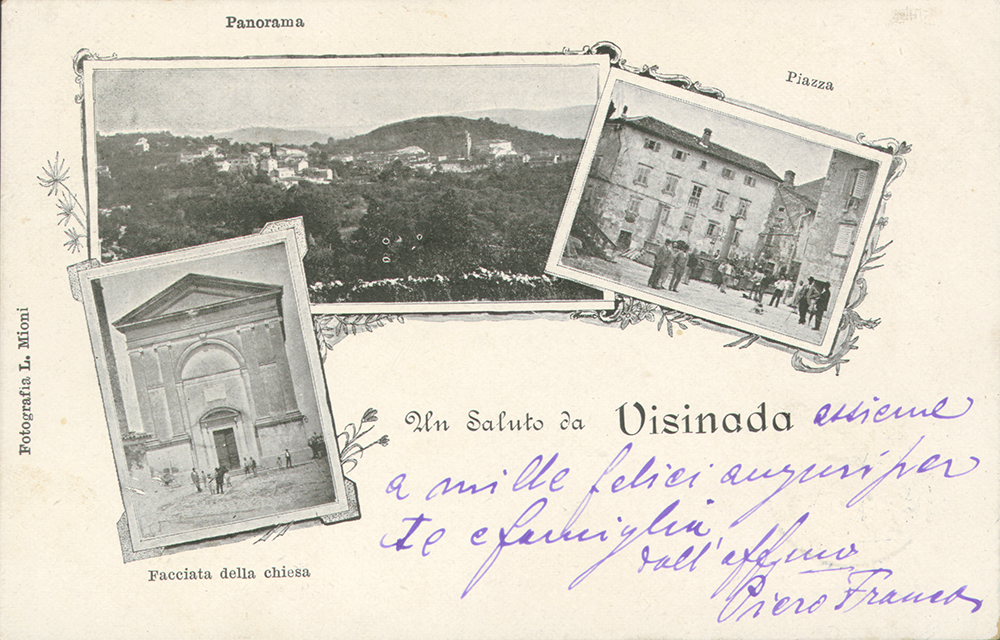 Panorama
Piazza
Fotografia L. Mioni
Facciata della chiesa
Un Saluto da Visinada assieme
a mille felici auguri per
te e famiglia,
dall'affmo
Piero Franco